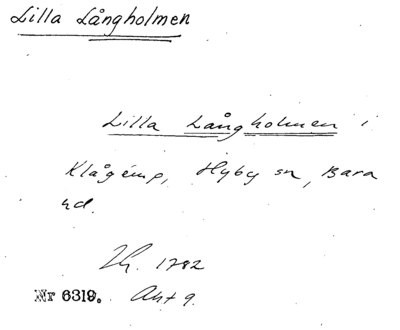 Lilla Långholmen
Lilla Långholmen i
Klågerup, Hyby sn, Bara
hd.
1782
Nr 6319. Akt 9.